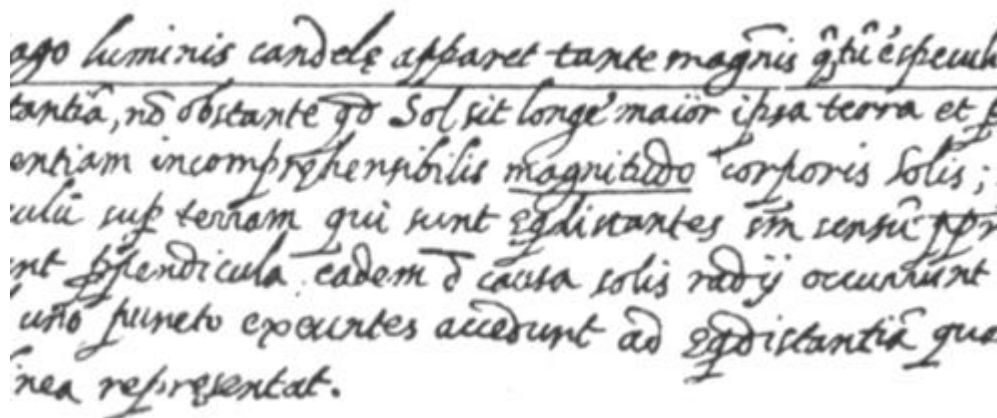 ago luminis candelę apparet tante magñis q̃tũ é specul
tantiã, nõ obstante qđ Sol sit longe maiör ipsa terra et p
entiam incompręhensibilis magnitudo corporis Solis;
culũ sup terram qui sunt Eqdistantes sm̃ sensũ ppr
nt ppendicula eadem đ causa solis radij occurrunt
uno puncto exeuntes accedunt ad Eqdistantiã qua
inea repręsentat.